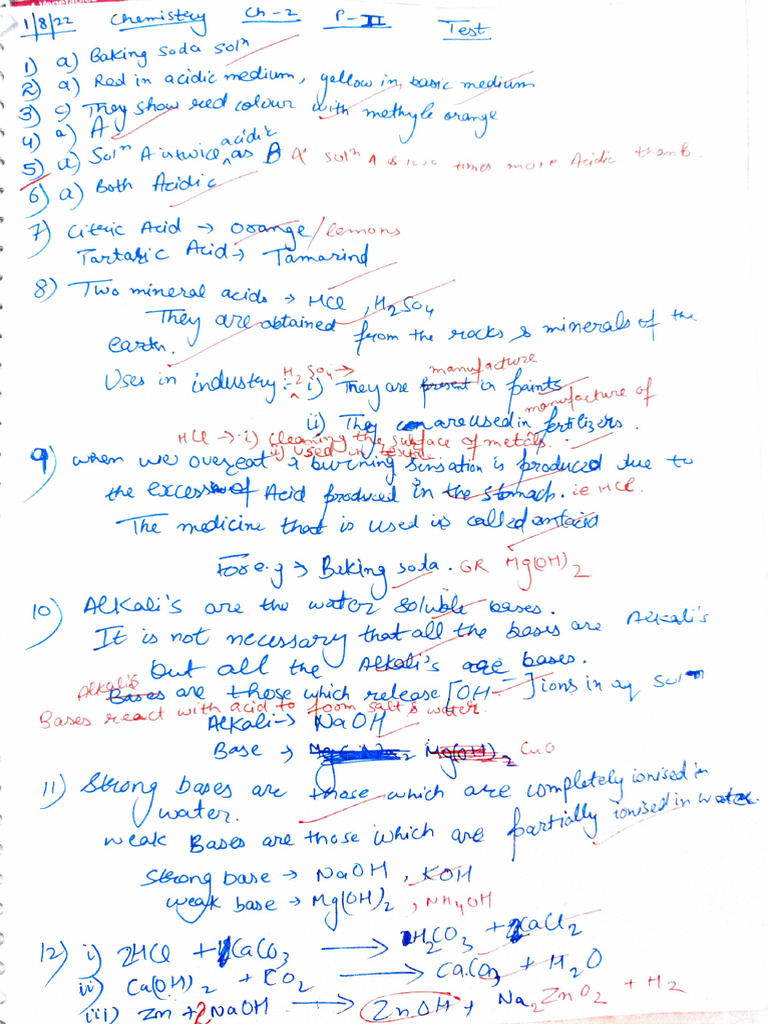 1/8/22 Chemistry Ch-2 P-II Test
1) a) Baking soda solⁿ
2) a) Red in acidic medium, yellow in basic medium
3) c) They show red colour with methyle orange
4) a) A
5) d) Solⁿ A is twice acidic as B A' solⁿ A is 100 times more Acidic than B.
6) a) Both Acidic
7) Citric Acid → Orange/lemons
Tartaric Acid → Tamarind
8) Two mineral acids → HCl, H₂SO₄
They are obtained from the rocks & minerals of the
earth.
Uses in industry :- H₂SO₄ → i) They are present manufacture in paints
ii) They are used in manufacture of fertilizers.
HCl → i) Cleaning the surface of metals.
ii) used in
9) When we overeat a burning sensation is produced due to
the excess of Acid produced in the stomach. ie HCl.
The medicine that is used is called antacid
For e.g → Baking soda. OR Mg(OH)₂
10) Alkali's are the water soluble bases.
It is not necessary that all the bases are Alkali's
but all the Alkali's are bases.
Alkali's Bases are those which release [OH⁻] ions in aq solⁿ
Bases react with acid to form salt & water.
Alkali → NaOH
Base → Mg(OH)₂ CuO
11) Strong bases are those which are completely ionised in
water.
Weak Bases are those which are partially ionised in water.
Strong base → NaOH, KOH
Weak base → Mg(OH)₂, NH₄OH
12) i) 2HCl + CaCO₃ → H₂CO₃ + CaCl₂
ii) Ca(OH)₂ + CO₂ → CaCO₃ + H₂O
iii) Zn + 2NaOH → ZnOH + Na₂ZnO₂ + H₂